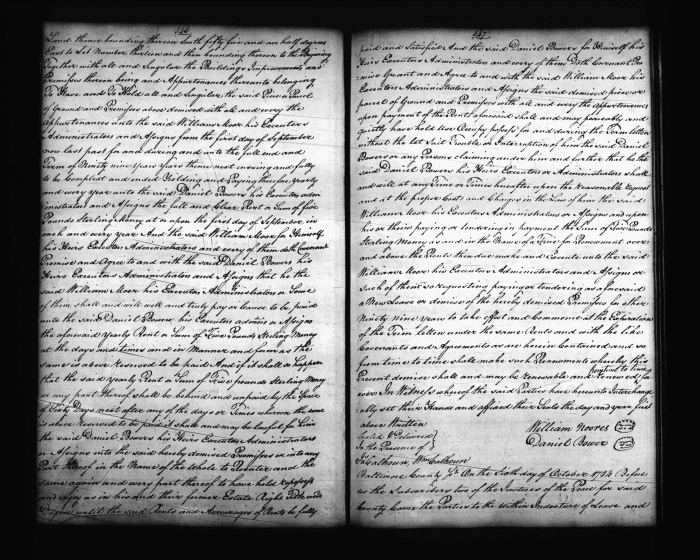 336
Land thence bounding thereon South fifty five and an half degrees
East to Lot Number thirteen and then bounding thereon to the Beginning
Together with all and Singular the Buildings Improvements and
Premises thereon being and Appurtenances thereunto belonging
To Have and To Hold all and Singular the said Piece or Parcel
of Ground and Premises above demised with all and every the
appurtenances unto the said William Moor his Executors
Administrators and Assigns from the first day of September
now last past for and during and unto the full end and
Term of Ninety nine Years thence next ensuing and fully
to be Compleat and ended Yielding and Paying therefor yearly
and every year unto the said Daniel Bowers his Executors adm
inistrators and Assigns the full and Clear Rent or Sum of five
Pounds Sterling Money at or upon the first day of September in
each and every Year And the said William Moor for Himself
his Heirs Executors Administrators and every of them doth Covenant
Promise and Agree to and with the said Daniel Bowers his
Heirs Executors Administrators and Assigns that he the
said William Moor his Executors Administrators or Some
of them shall and will well and truly pay or Cause to be paid
unto the said Daniel Bowers his Executors admors or Assigns
the aforesaid yearly Rent or Sum of Five Pounds Sterling Money
at the days and times and in Manner and form as the
same is above Reserved to be paid And if it shall so happen
that the said yearly Rent or Sum of Five pounds Sterling Money
or any part thereof shall be behind and unpaid by the Space
of Sixty Days next after any of the days or Times whereon the same
is above Reserved to be paid it shall and may be lawful for him
the said Daniel Bowers his Heirs Executors Administrators
or Assigns into the said hereby demised Premises or into any
Part thereof in the Name of the Whole to Reenter and the
same again and every part thereof to have hold repossess
and enjoy as in his and their former Estate Right Title and
Degree until the said Rents and Arrearages of Rents be fully
337
paid and Satisfied And the said Daniel Bowers for Himself his
Heirs Executors Administrators and every of them Doth Covenant Pro
mise Grant and Agree to and with the said William Moor his
Executors Administrators and Assigns the said demised piece or
parcel of Ground and Premises with all and every the Appurtenances
upon payment of the Rents aforesaid shall and may peaceably and
quietly have hold use Occupy possess for and during the Term
without the Let Suit Trouble or Interruption of him the said Daniel
Bowers or any Persons claiming under him and further that he the
said Daniel Bowers his Heirs Executors or Administrators shall
and will at any Time or Times hereafter upon the reasonable request
and at the proper Costs and Charges in the Law of him the said
William Moor his Executors Administrators or Assigns and upon
his or their paying or tendering in payment the Sum of Five Pounds
Sterling Money as and in the Name of a Fine for Renewment over
and above the Rents then due make and Execute unto the said
William Moor his Executors Administrators and Assigns or
such of them so requesting paying or tendering as aforesaid
a New Lease or demise of the hereby demised Premises for other
Ninety nine Years to take effect and Commence at the Expiration
of the Term under the same Rents and with the like
Covenants and Agreements as are herein Contained and so
from time to time shall make such Renewments whereby this
Present demise shall and may be renewable and renewed from time to time for
ever In Witness whereof the said Parties have hereunto Interchange
ably set their Hands and affixed their Seals the day and year first
above Written
William Moores
Sealed & Delivered
Daniel Bower
In the Presence of
Calhoun Wm Calhoun
Baltimore County Ss. On the Sixth day of October Before
us the Subscribers two of the Justices of the Peace for said
County Came the Parties to the Within Indenture of Lease and